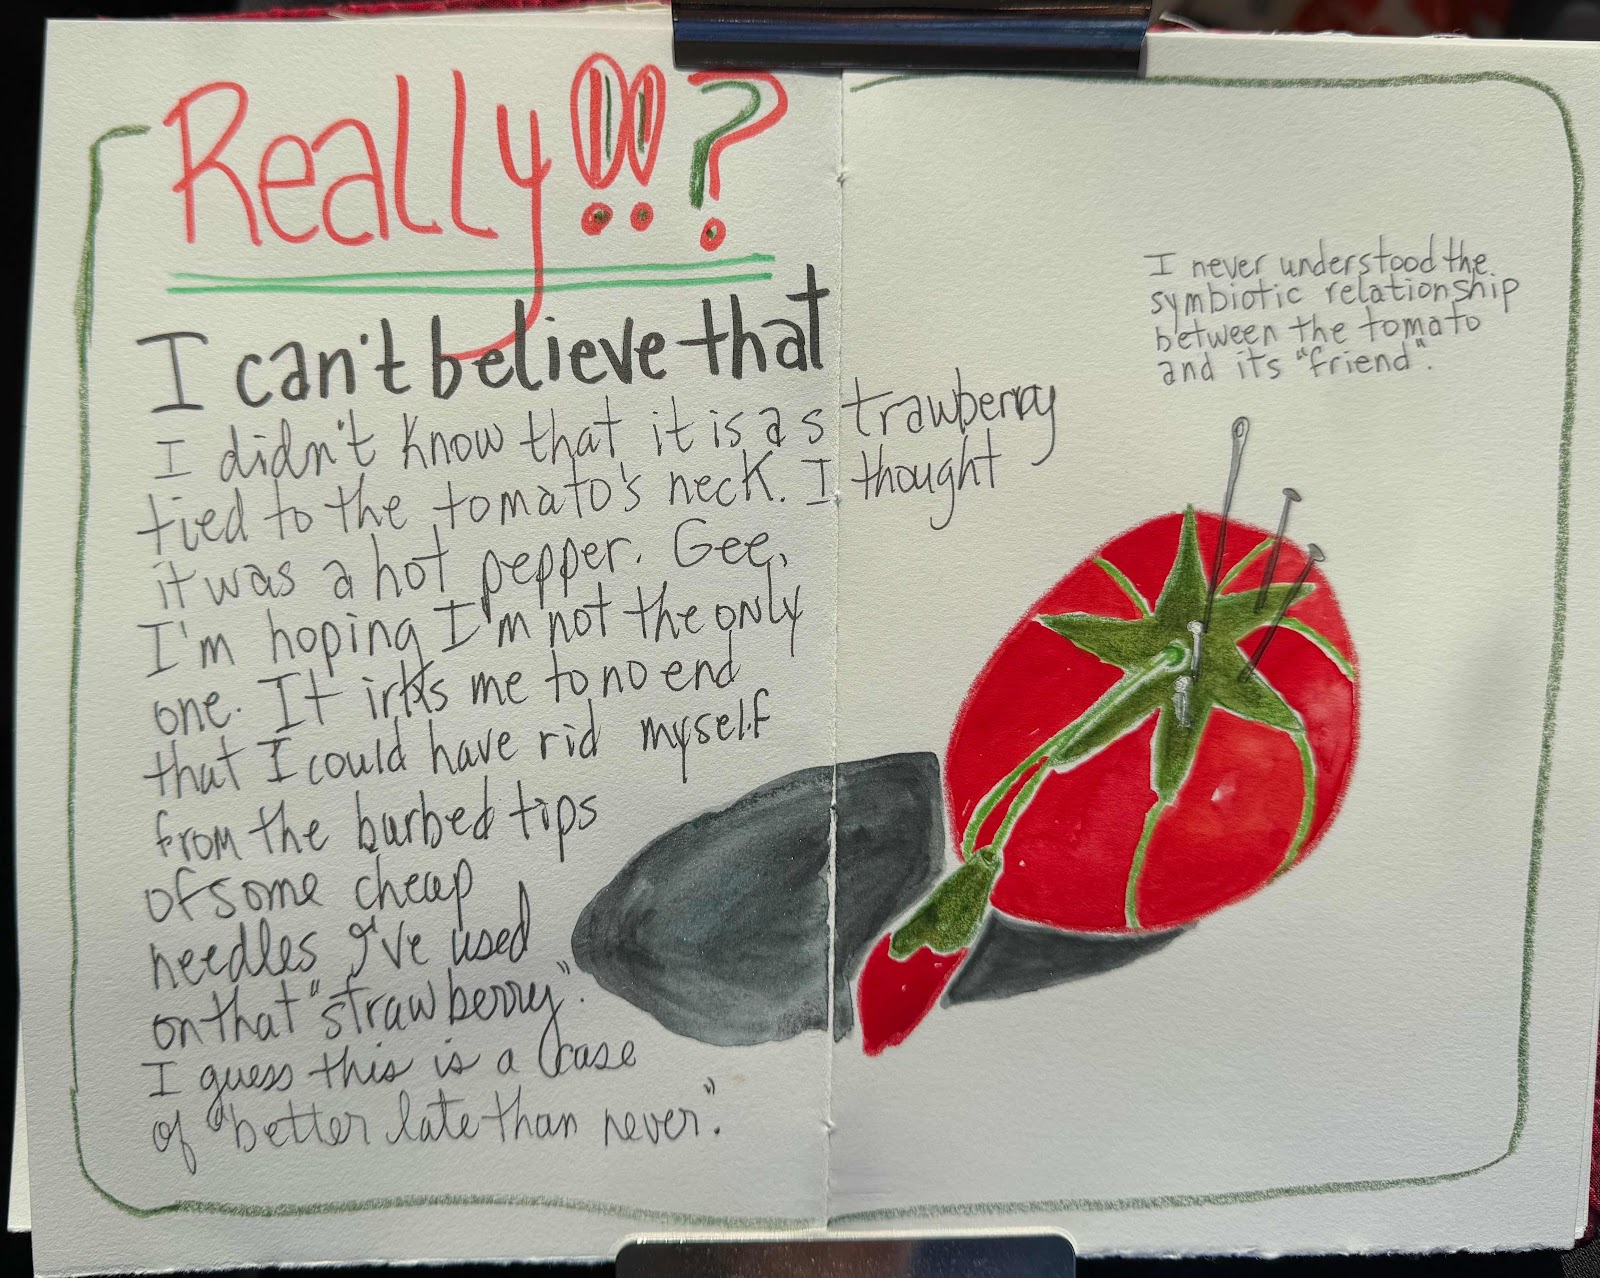 Really!!?
I can't believe that
I didn't know that it is a strawberry
tied to the tomato's neck. I thought
it was a hot pepper. Gee,
I'm hoping I'm not the only
one. It irks me to no end
that I could have rid myself
from the burbed tips
of some cheap
needles I've used
on that "strawberry".
I guess this is a case
of "better late than never".
I never understood the
symbiotic relationship
between the tomato
and its "friend".